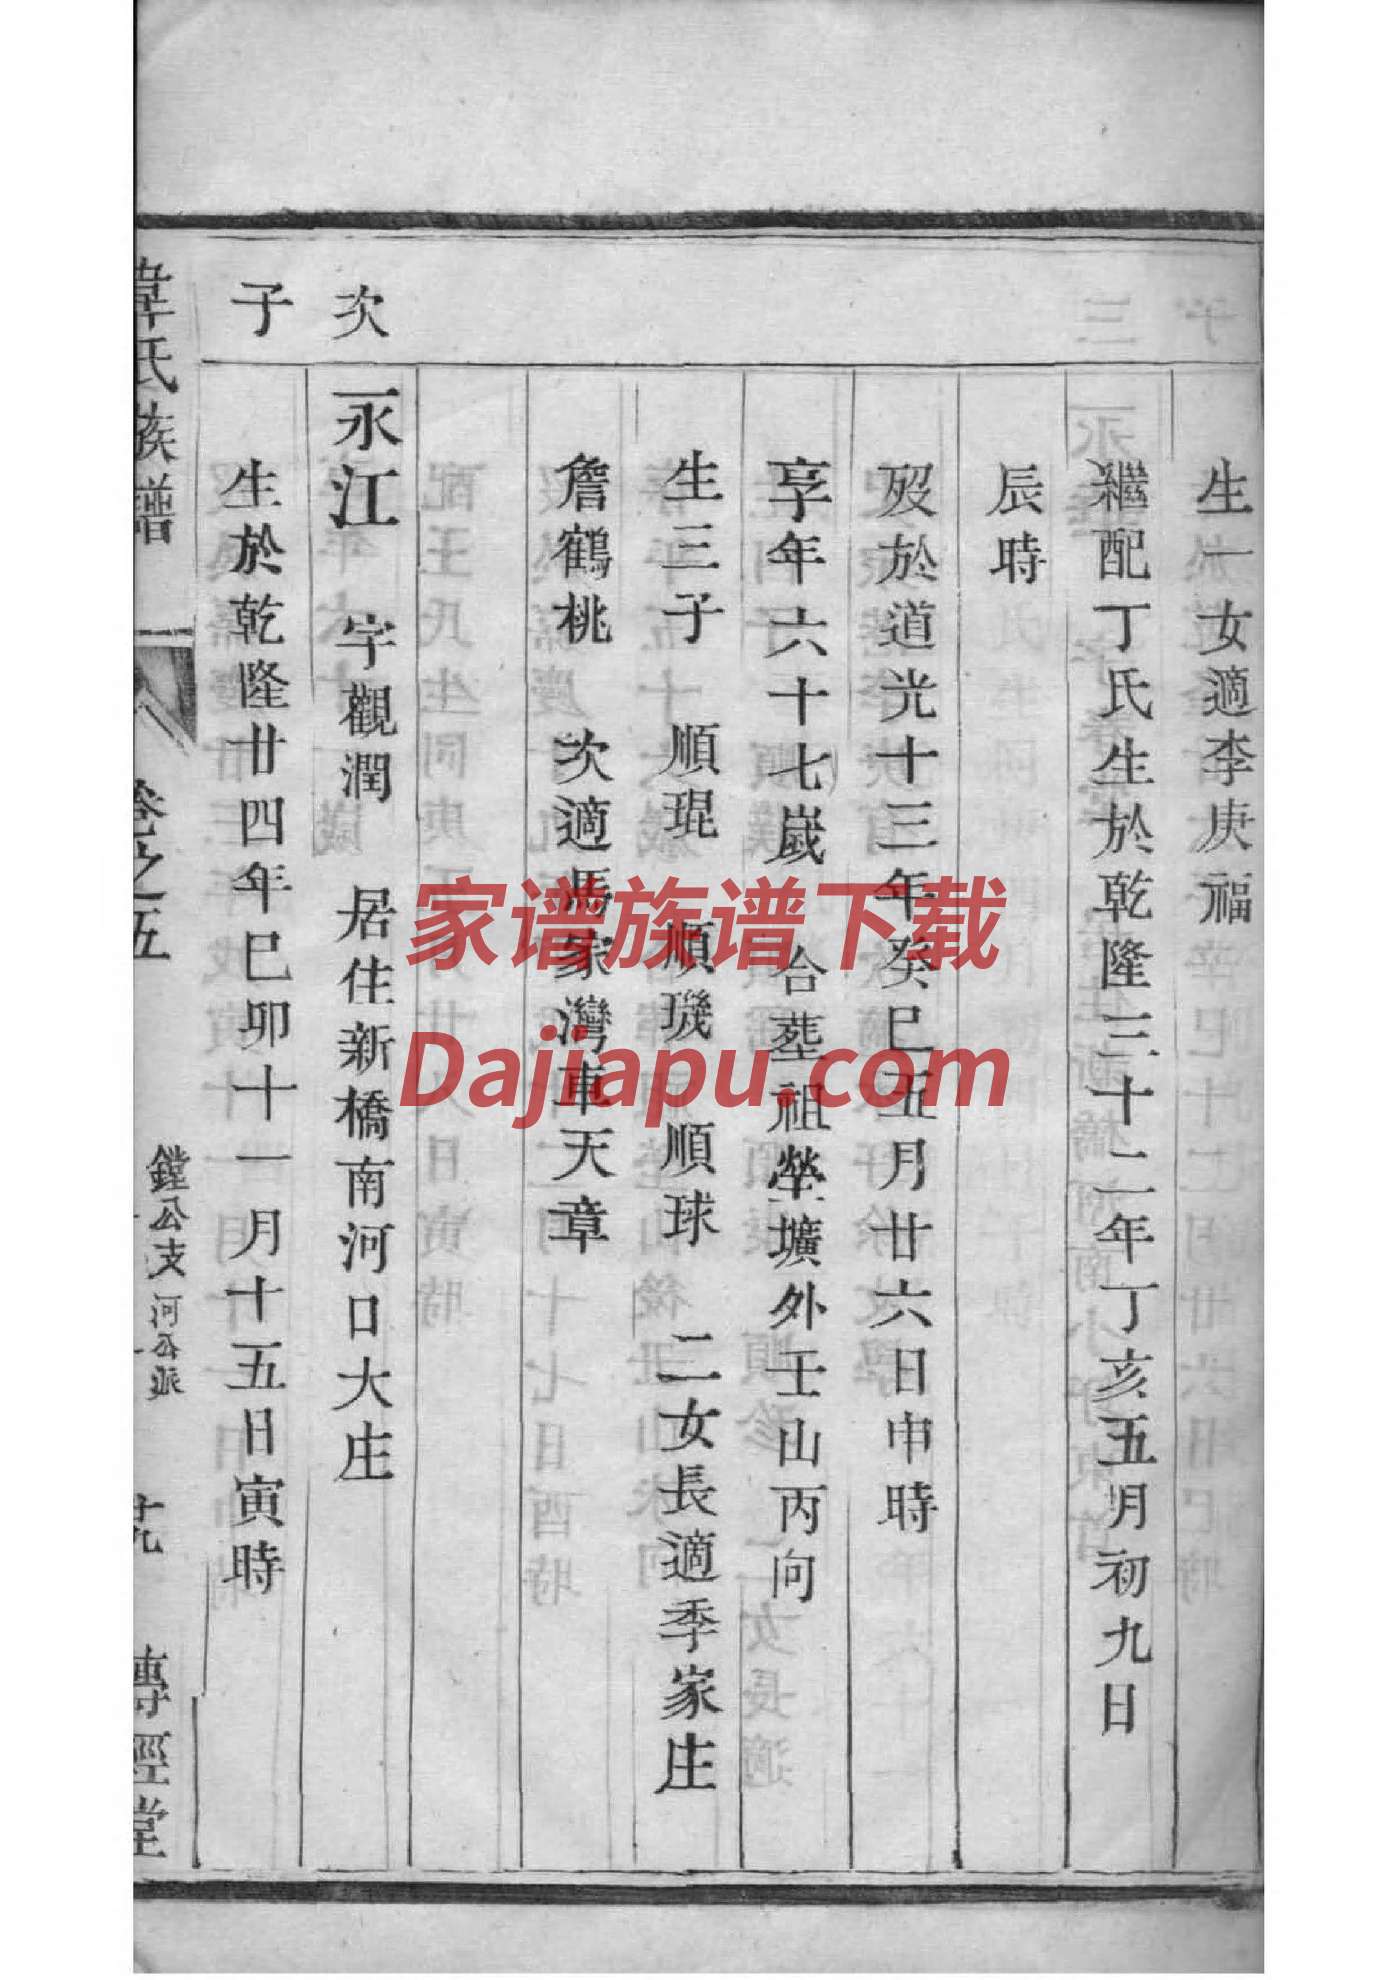 生一女適李庚福
繼配丁氏生於乾隆三十二年丁亥五月初九日
辰時
歿於道光十三年癸巳五月廿六日申時
享年六十七嵗 合葬祖塋壙外壬山丙向
生三子 順琨 順璣 順球 二女長適季家庄
詹鶴桃 次適馮家灣車天章
次子
永江 字觀潤 居住新橋南河口大庄
生於乾隆廿四年巳卯十一月十五日寅時
韋氏族譜 卷之五 鏜公支河公派 十九 傳經堂
家谱族谱下载
Dajiapu.com